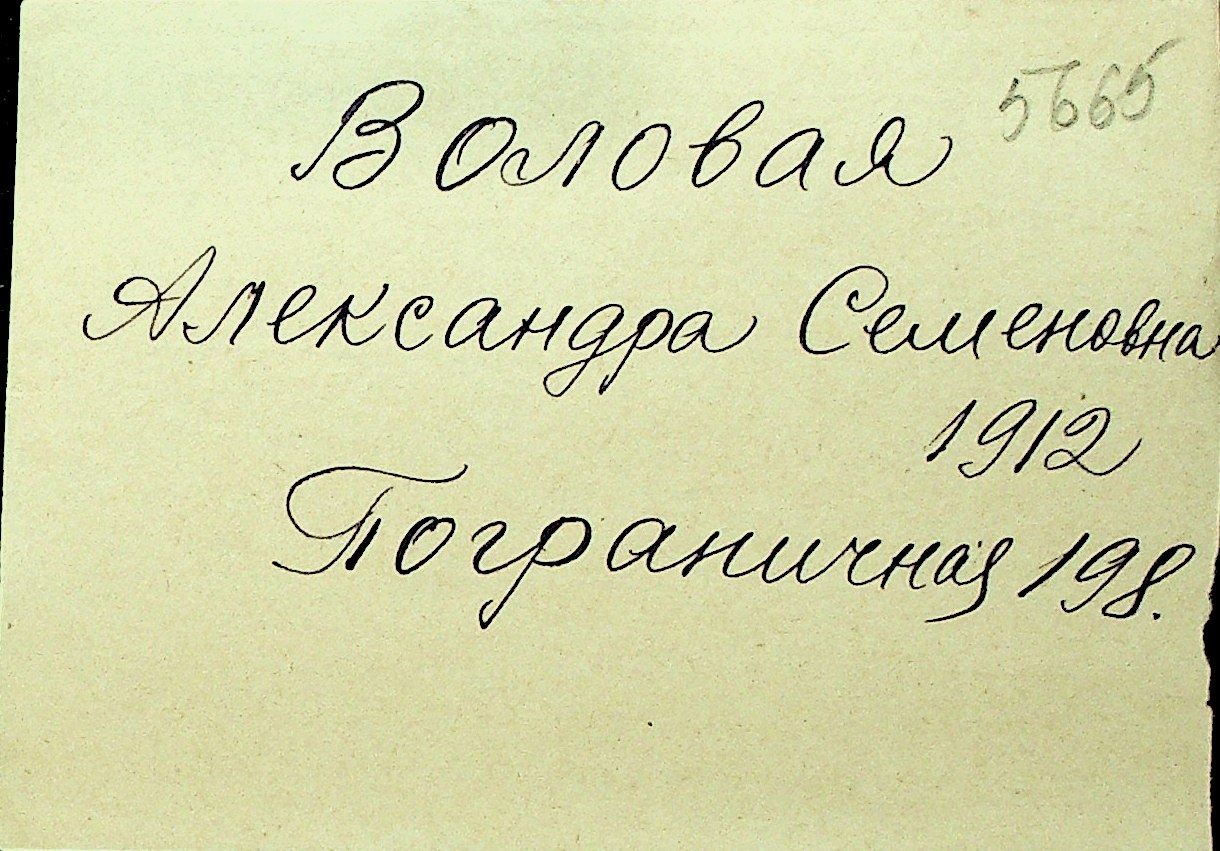 5665
Воловая
Александра Семеновна
1912
Пограничная 198.